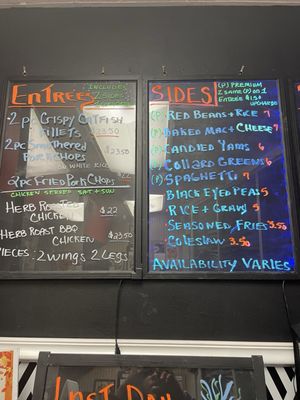 ENTREES
INCLUDES
2 SIDES
2PC CRISPY CATFISH
FILLETS $23.50
2PC SMOTHERED
PORK CHOPS $23.50
WHITE RICE
2PC FRIED PORK CHOPS
CHICKEN SERVED SAT + SUN
HERB ROASTED
CHICKEN $22
HERB ROAST BBQ
CHICKEN $23.50
PIECES: 2 WINGS 2 LEGS
SIDES
(P) PREMIUM
2 SAME (P) OR 1
ENTREE $1.50
UPCHARGE
(P) RED BEANS + RICE 7
(P) BAKED MAC + CHEESE 7
(P) CANDIED YAMS 6
(P) COLLARD GREENS 6
(P) SPAGHETTI 7
BLACK EYED PEAS 5
RICE + GRAVY 5
SEASONED FRIES 3.50
COLESLAW 3.50
AVAILABILITY VARIES
LAST DAY